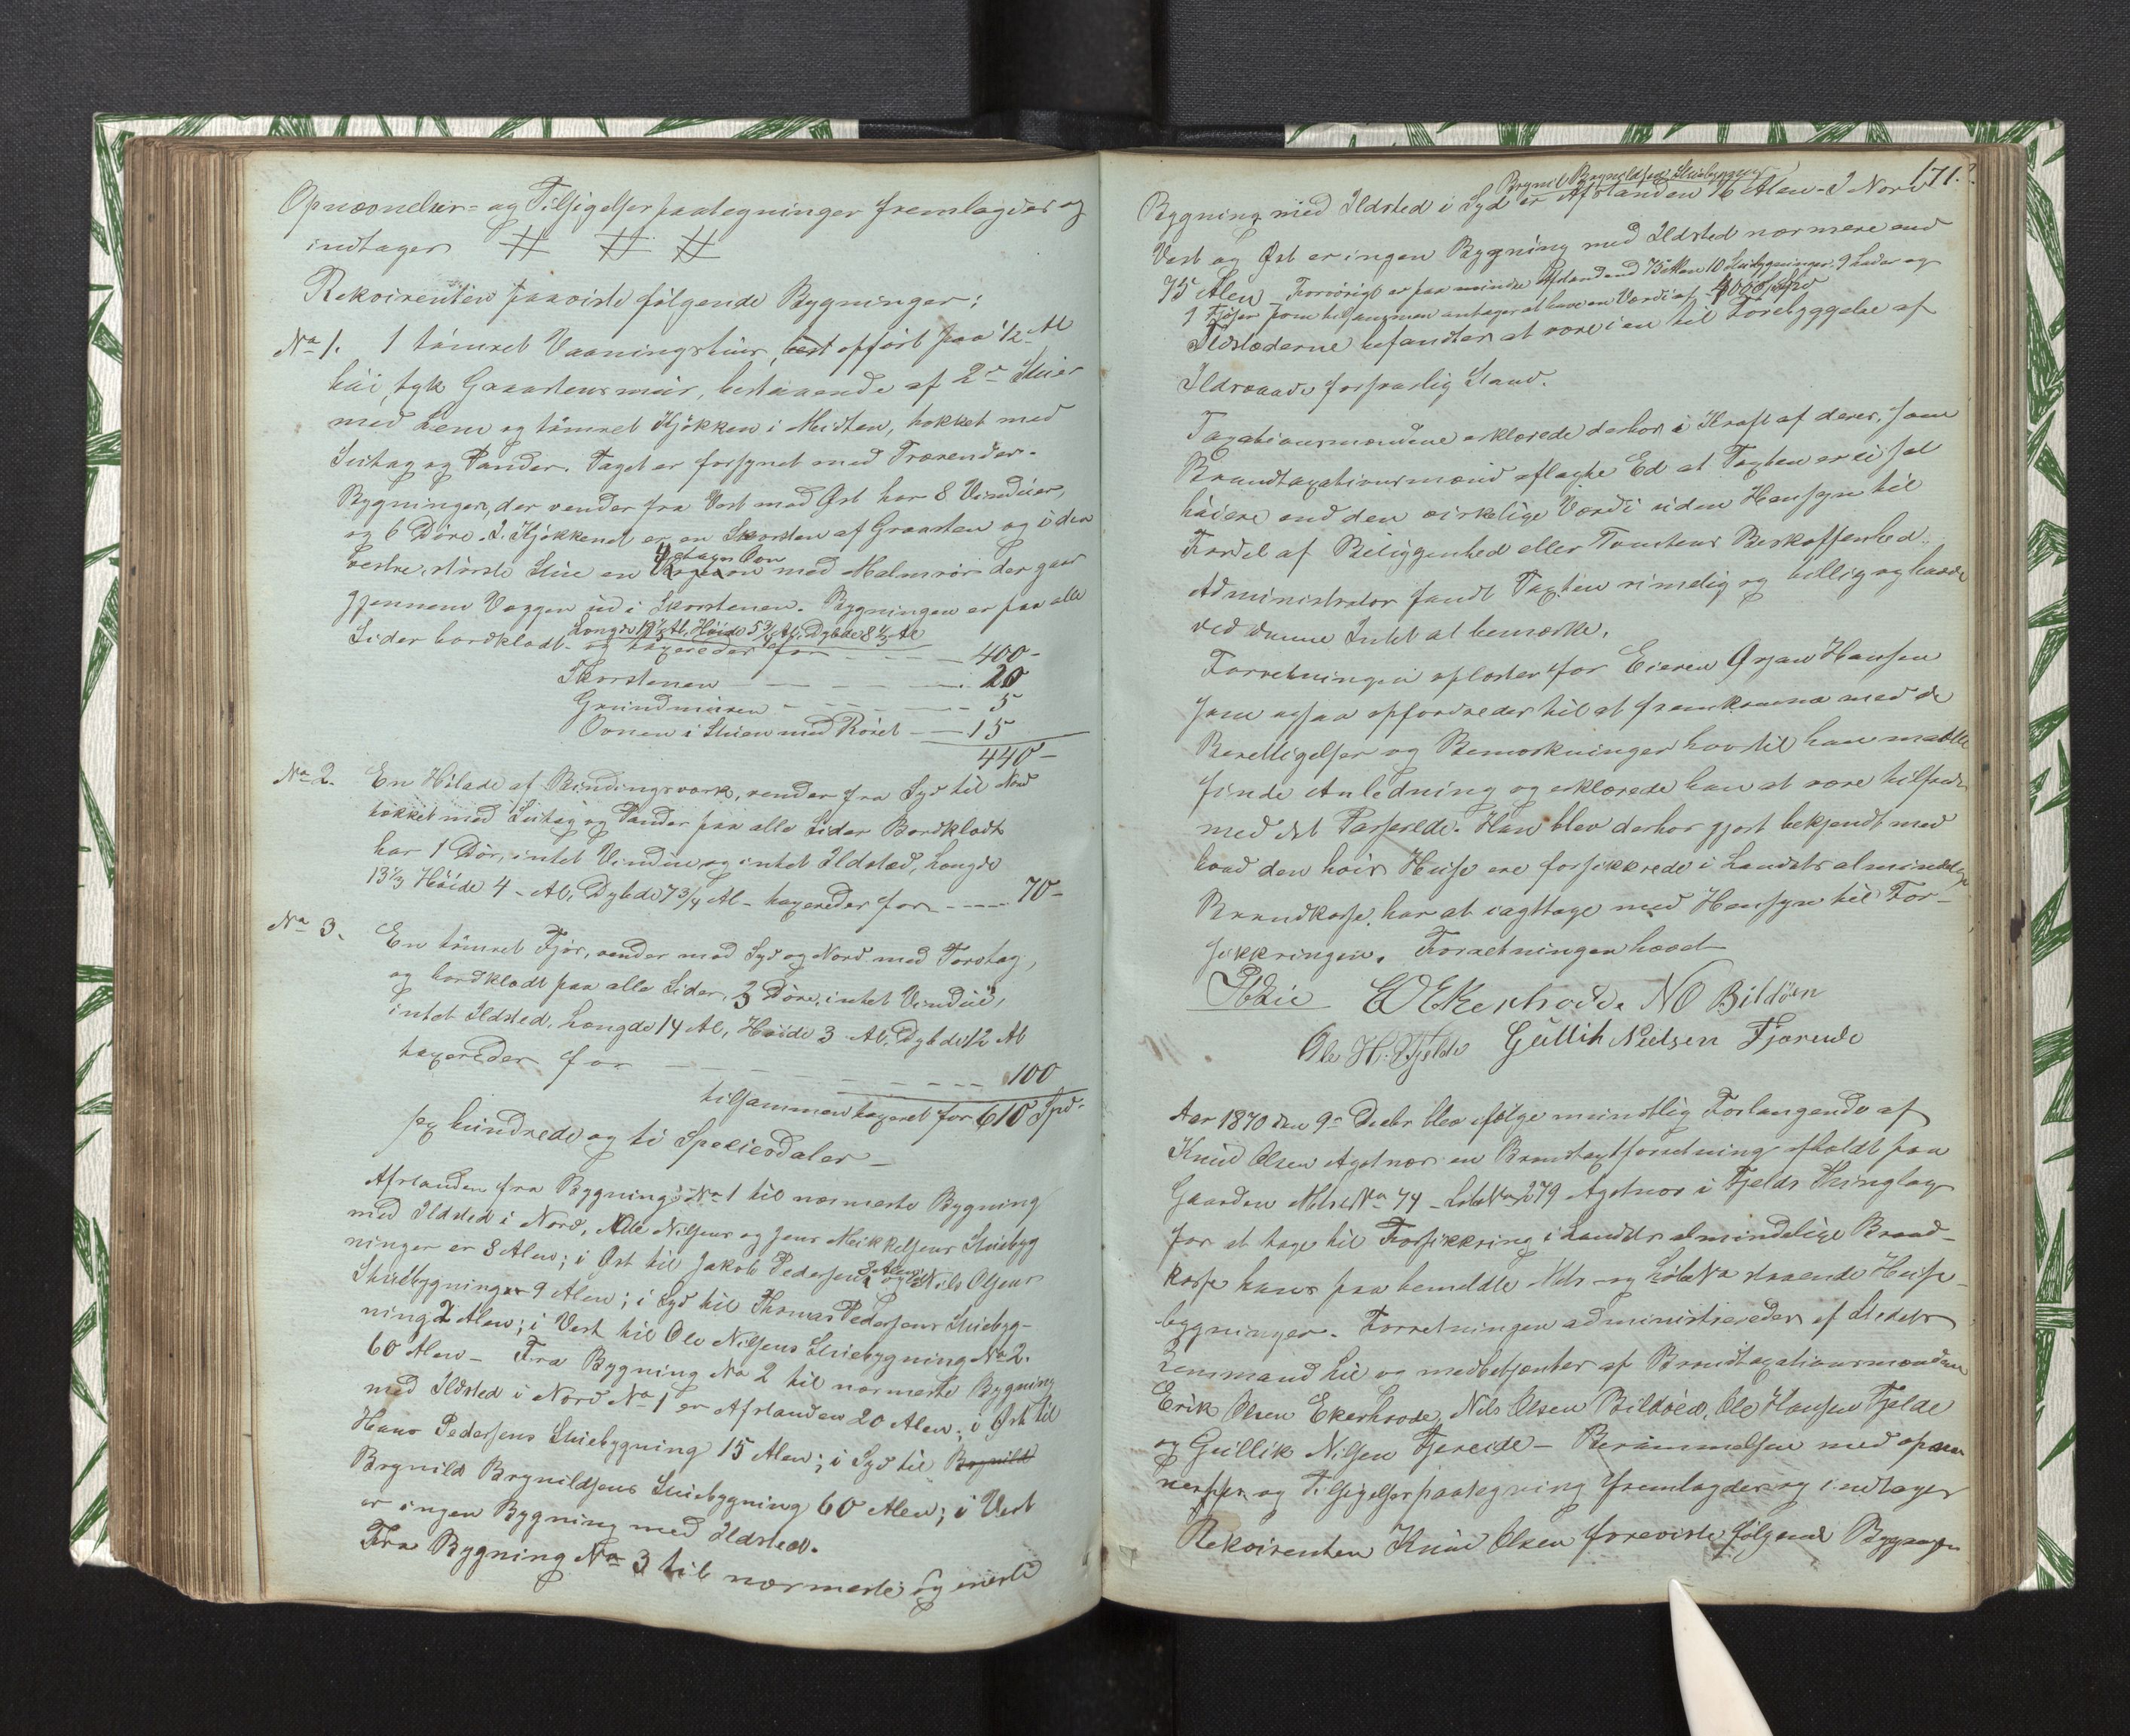 Opnævnelses- og Tilsigelsespaategninger fremlagdes og
indtages # # #
Rekvirenten paaviste følgende Bygninger:
No 1. 1 tømret Vaaningshuus, opført paa 1/2 Al
høi, tyk Graastensmuur, bestaaende af 2de Stuer
med Lem og tømret Kjøkken i Midten, tækket med
Sutag og Pander. Taget er forsynet med Trærender.
Bygningen, der vender fra Vest mod Øst har 8 Vinduer,
og 6 Døre. I Kjøkkenet er en Skorsten af Graasten og i den
4 etages Ovn
vestre, største Stue en med Malmrør der gaar
gjennem Væggen ud i Skorstenen. Bygningen er paa alle
Længde 19 1/2 Al, Høide 5 3/4 Al, Dybde 8 1/2 Al
Sider bordklædt og taxeredes for - - - - 400-
Skorstenen - - - - - 20
Grundmuren - - - - - 5
Ovnen i Stuen med Røret - - 15
440-
No 2. En Hølade af Bindingsværk, vender fra Syd til Nord
tækket med Sutag og Pander paa alle Sider Bordklædt
har 1 Dør, intet Vindue og intet Ildsted, Længde
13 1/3 Høide 4 - Al, Dybde 7 3/4 Al - taxeredes for - - - - 70-
No 3. En tømret Fjøs, vender mod Syd og Nord med Torvtag,
og bordklædt paa alle Sider, 3 Døre, intet Vindue,
intet Ildsted, Længde 14 Al, Høide 3 Al, Dybde 12 Al
taxeredes for - - - - - - - 100
tilsammen taxeret for 610 Spd.
sex hundrede og ti Speciedaler -
Afstanden fra Bygning No 1 til nærmeste Bygning
med Ildsted i Nord, Ole Nilsens og Jens Mikkelsens Stuebyg
ninger er 8 Alen; i Øst til Jakob Pedersens 8 Alen og til Nils Olsens
Stuebygninger 9 Alen; i Syd til Thomas Pedersens Stuebyg-
ning 2 Alen; i Vest til Ole Nilsens Stuebygning No 2.
60 Alen - Fra Bygning No 2 til nærmeste Bygning
med Ildsted i Nord No 1 er Afstanden 20 Alen; i Øst til
Hans Pedersens Stuebygning 15 Alen; i Syd til Brynild
Brynild Brynildsens Stuebygning 60 Alen; i Vest
er ingen Bygning med Ildsted.
Fra Bygning No 3 til nærmeste og eneste
171.
Brynild Brynildsens Stuebygning
Bygning med Ildsted i Syd er Afstanden 16 Alen - I Nord
Vest og Øst er ingen Bygning med Ildsted nærmere end
75 Alen - Forøvrigt er paa mindre Afstand end 75 Alen 10 Stuebygninger, 9 Lader og
9 Fjøser som tilsammen antages at have en Værdi af 4000 Spd
Ildstæderne befandtes at være i en til Forebyggelse af
Ildsvaade forsvarlig Stand.
Taxationsmændene erklærede derhos i Kraft af deres, som
Brandtaxationsmænd aflagte Ed at Taxten er ei sat
høiere end den virkelige Værdi uden Hensyn til
Fordel af Beliggenhed eller Tomtens Beskaffenhed.
Administrator fandt Taxten rimelig og billig og havde
ved denne Intet at bemærke.
Forretningen oplæstes for Eieren Ørjan Hansen
som ogsaa opfordredes til at fremkomme med de
Berettigelser og Bemærkninger hvortil han maatte
finde Anledning og erklærede han at være tilfreds
med det Passerede. Han blev derhos gjort bekjendt med
hvad den hvis Huse ere forsikkrede i Landets almindelige
Brandkasse har at iagttage med Hensyn til For-
sikkringen. Forretningen hævet
Lie E O Ekerhovde. N O Bildøen
Ole H. Fjelde Gullik Nielsen Fjæreide
Aar 1870 den 9de Decbr blev ifølge mundtlig Forlangende af
Knud Olsen Agotnæs en Brandtaxtforretning afholdt paa
Gaarden Matr No 74 - Løbe No 279 Agotnæs i Fjelds Thinglag
for at tage til Forsikkring i Landets almindelige Brand-
kasse hans paa bemeldte Matr- og Løbe No staaende Huse-
bygninger. Forretningen administreredes af Stedets
Lensmand Lie og medbetjentes af Brandtaxationsmændene
Erik Olsen Ekerhovde, Nils Olsen Bildøen, Ole Hansen Fjelde
og Gullik Nilsen Fjereide - Berammelsen med opnæv-
nelses og Tilsigelsespaategning fremlagdes og indtages
Rekvirenten Knud Olsen foreviste følgende Bygninger